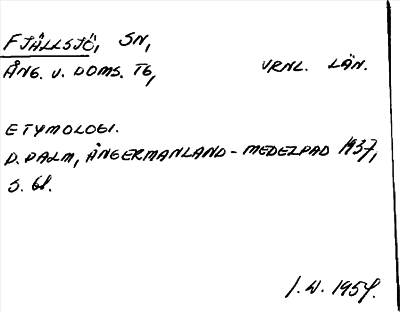 FJÄLLSJÖ, SN,
ÅNG. V. DOMS. TG, VRNL. LÄN.
ETYMOLOGI.
D. PALM, ÅNGERMANLAND - MEDELPAD 1937,
S. 68.
I. W. 1954.